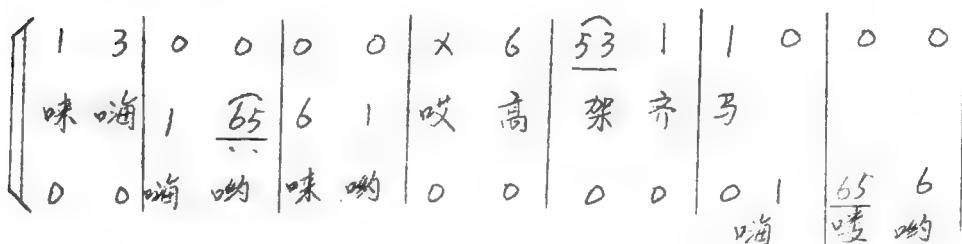 1 3 | 0 0 | 0 0 | X 6 | 53 1 | 1 0 | 0 0
咪 嗨 | 1 65 | 6 1 | 哎 高 | 架 齐 | 马
0 0 | 嗨 哟 | 咪 哟 | 0 0 | 0 0 | 0 1 | 65 6
嗨 | 喽 哟